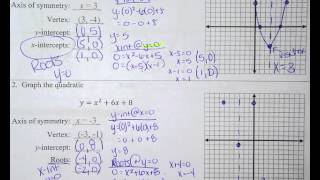 Axis of symmetry: x = 3
Vertex: (3, -4)
y-intercept: (0, 5)
x-intercepts: (5, 0)
(1, 0)
Roots
y=0
y=(0)²-6(0)+5
=0-0+5
y=5
x-int @ y=0
0=x²-6x+5
0=(x-5)(x-1)
x-5=0
x=5
(5,0)
x-1=0
x=1
(1,0)
Vertex
x=3
2. Graph the quadratic
y = x² + 6x + 8
Axis of symmetry: x = -3
Vertex: (-3, -1)
y-intercept: (0, 8)
Roots: (-4, 0)
(-2, 0)
x-int
y-int @ x=0
y=(0)²+6(0)+8
=0+0+8
y=8
Roots @ y=0
0=x²+6x+8
x+4=0
x=-4